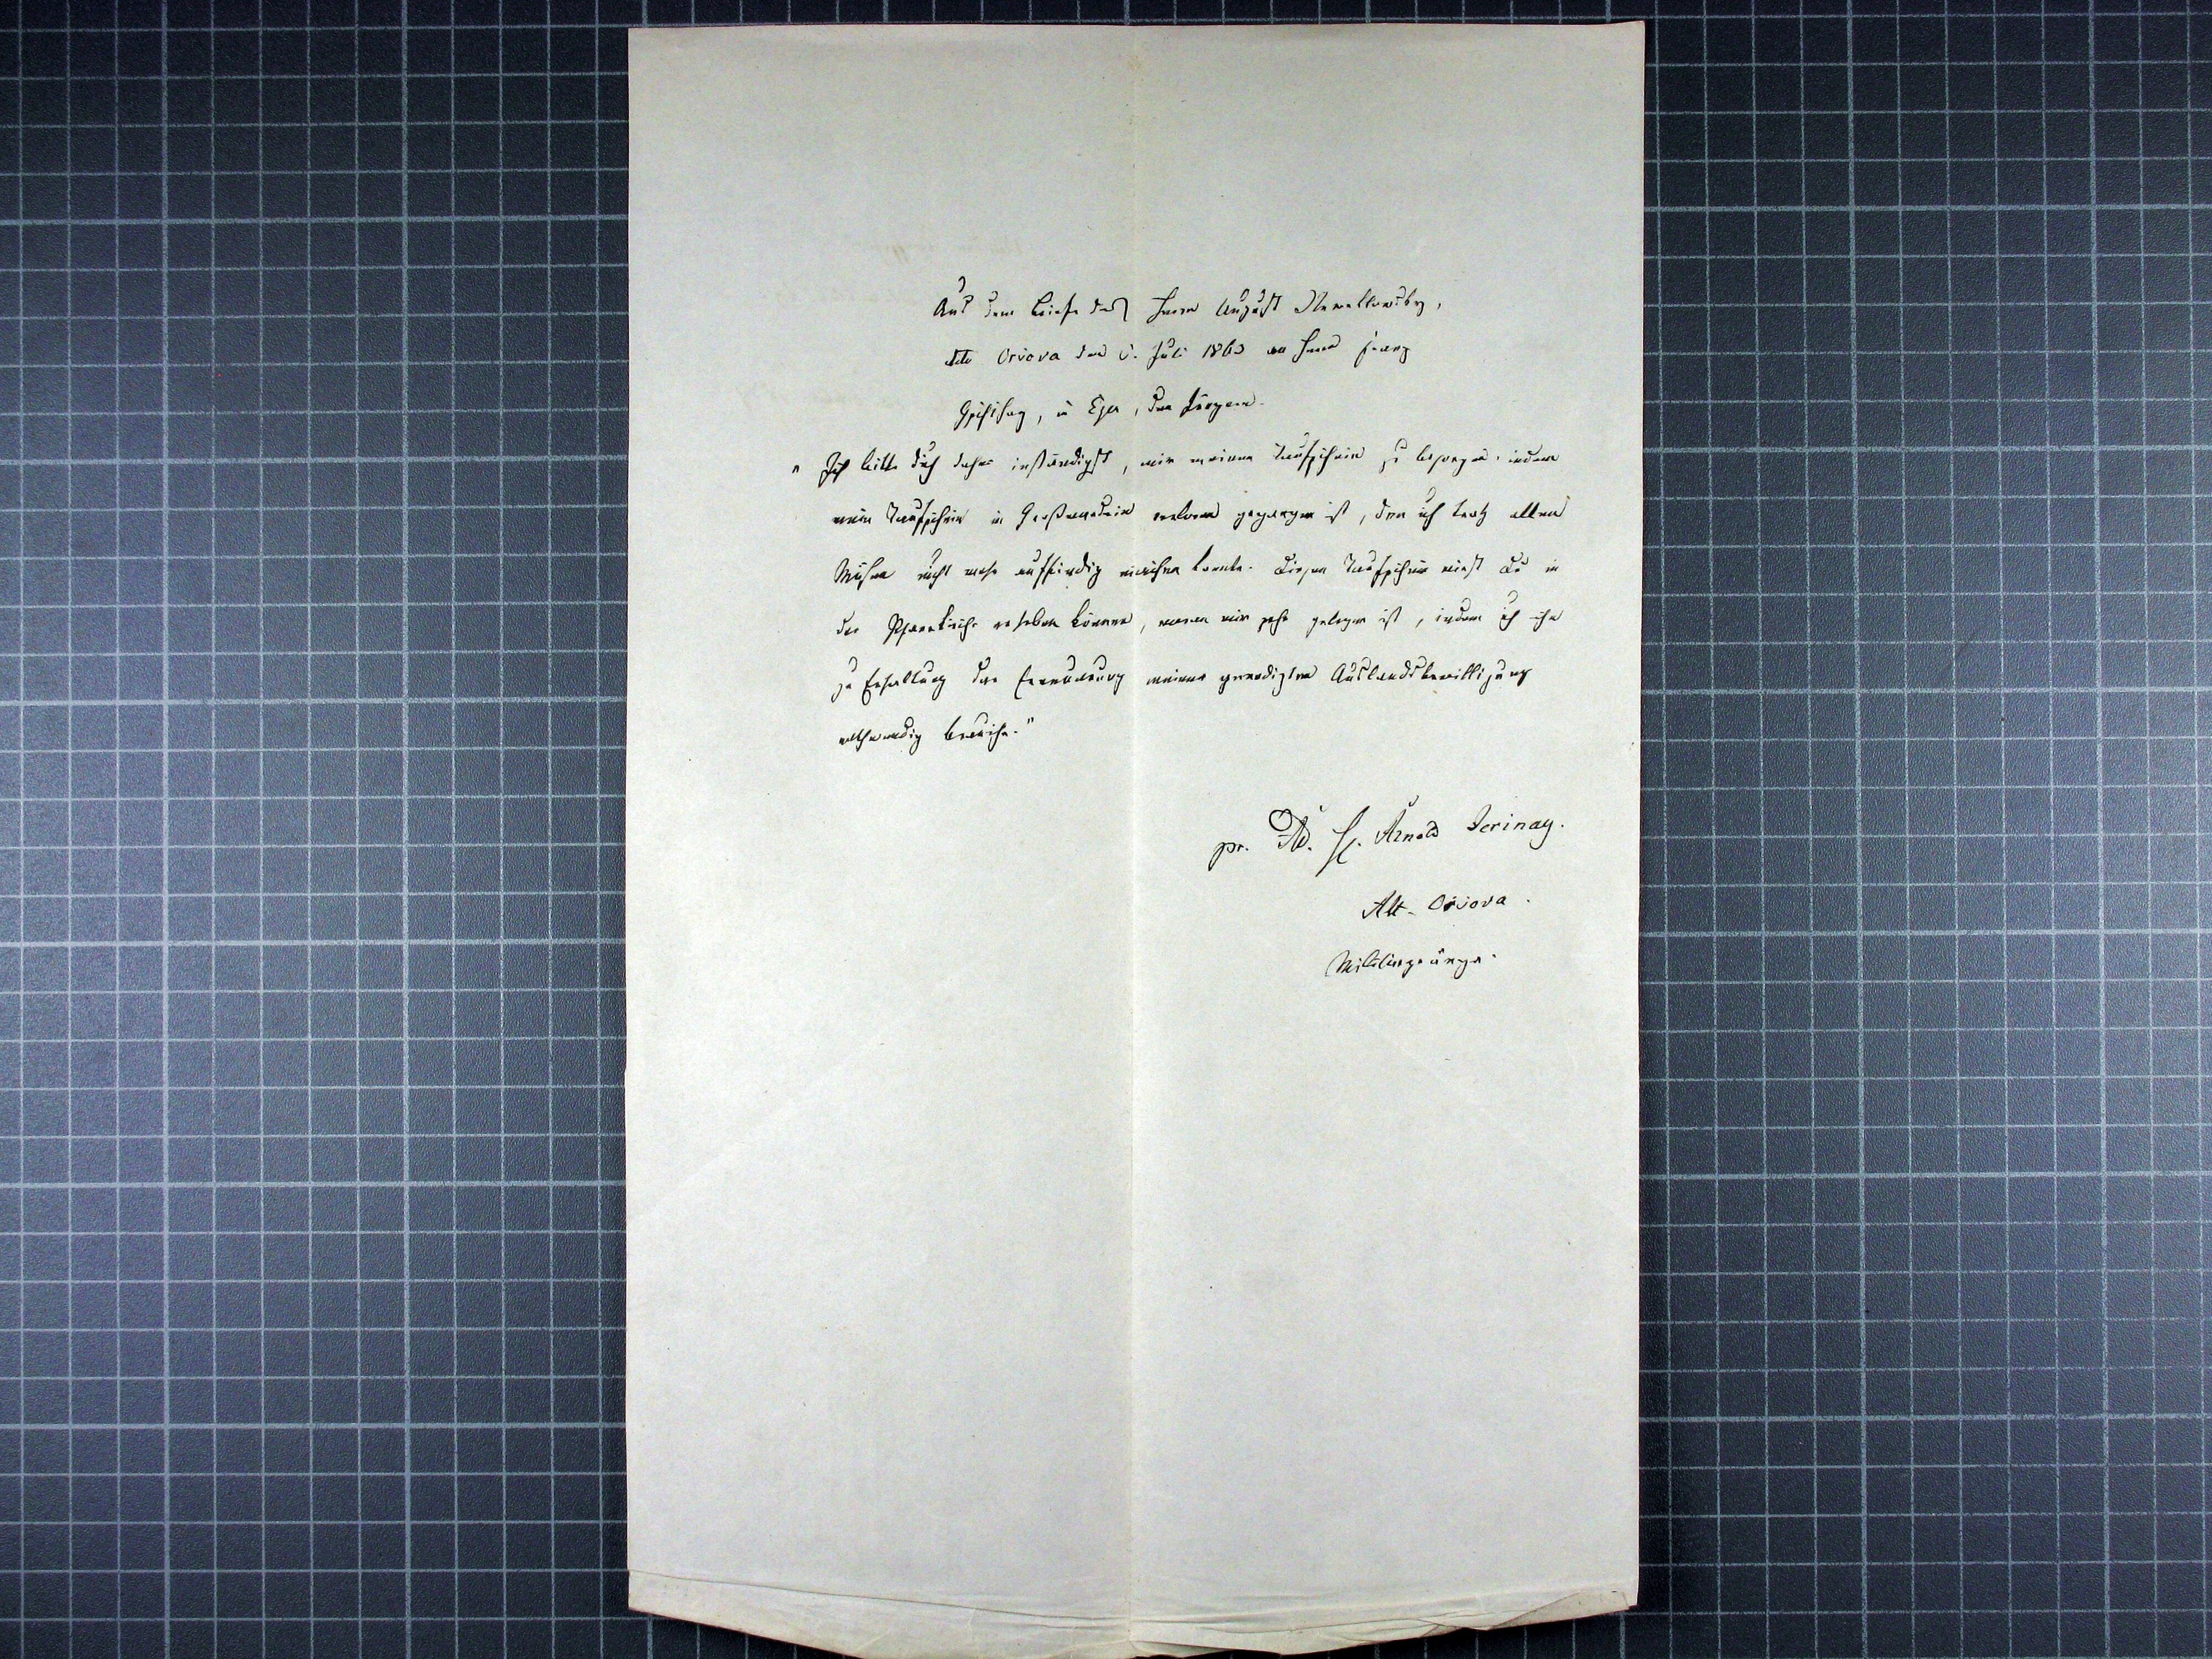 Aus dem Briefe des Herrn August
dto Orsova den 6. Juli 1863 an Herrn Franz
in Eger,
"Ich bitte dich daher inständigst, mir meinen Taufschein zu besorgen, indem
mein Taufschein in Großwardein verloren gegangen ist, den ich trotz allen
Mühen nicht mehr auffindig machen konnte. Diesen Taufschein wirst Du in
der Pfarrkirche erheben können, woran mir sehr gelegen ist, indem ich ihn
zu Erhaltung der Erneuerung meiner gnädigsten Auslandsbewilligung
nothwendig brauche."
pr. Ad. H. Arnold Serinay.
Alt-Orsova.
Militärgränze.